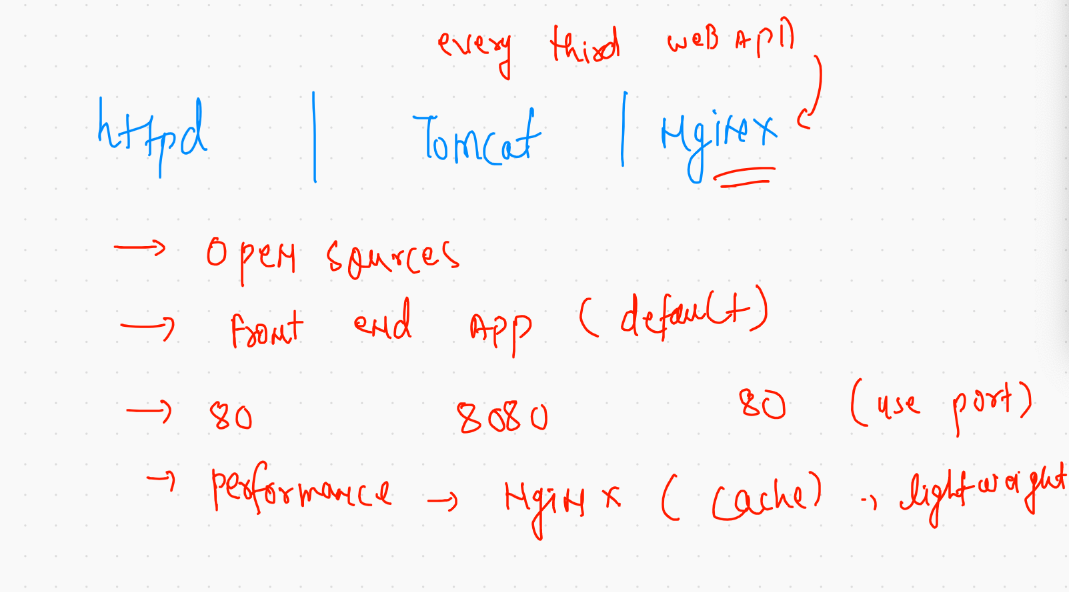 every third web App
httpd | Tomcat | Nginex
→ Open sources
→ Front end App (default)
→ 80 8080 80 (use port)
→ performance → Nginx (cache) → lightwaight